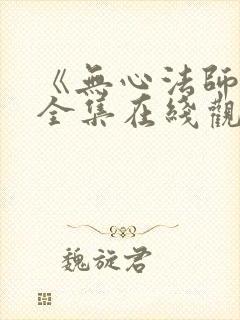 《無心法師
全集在綫觀
魏旋君